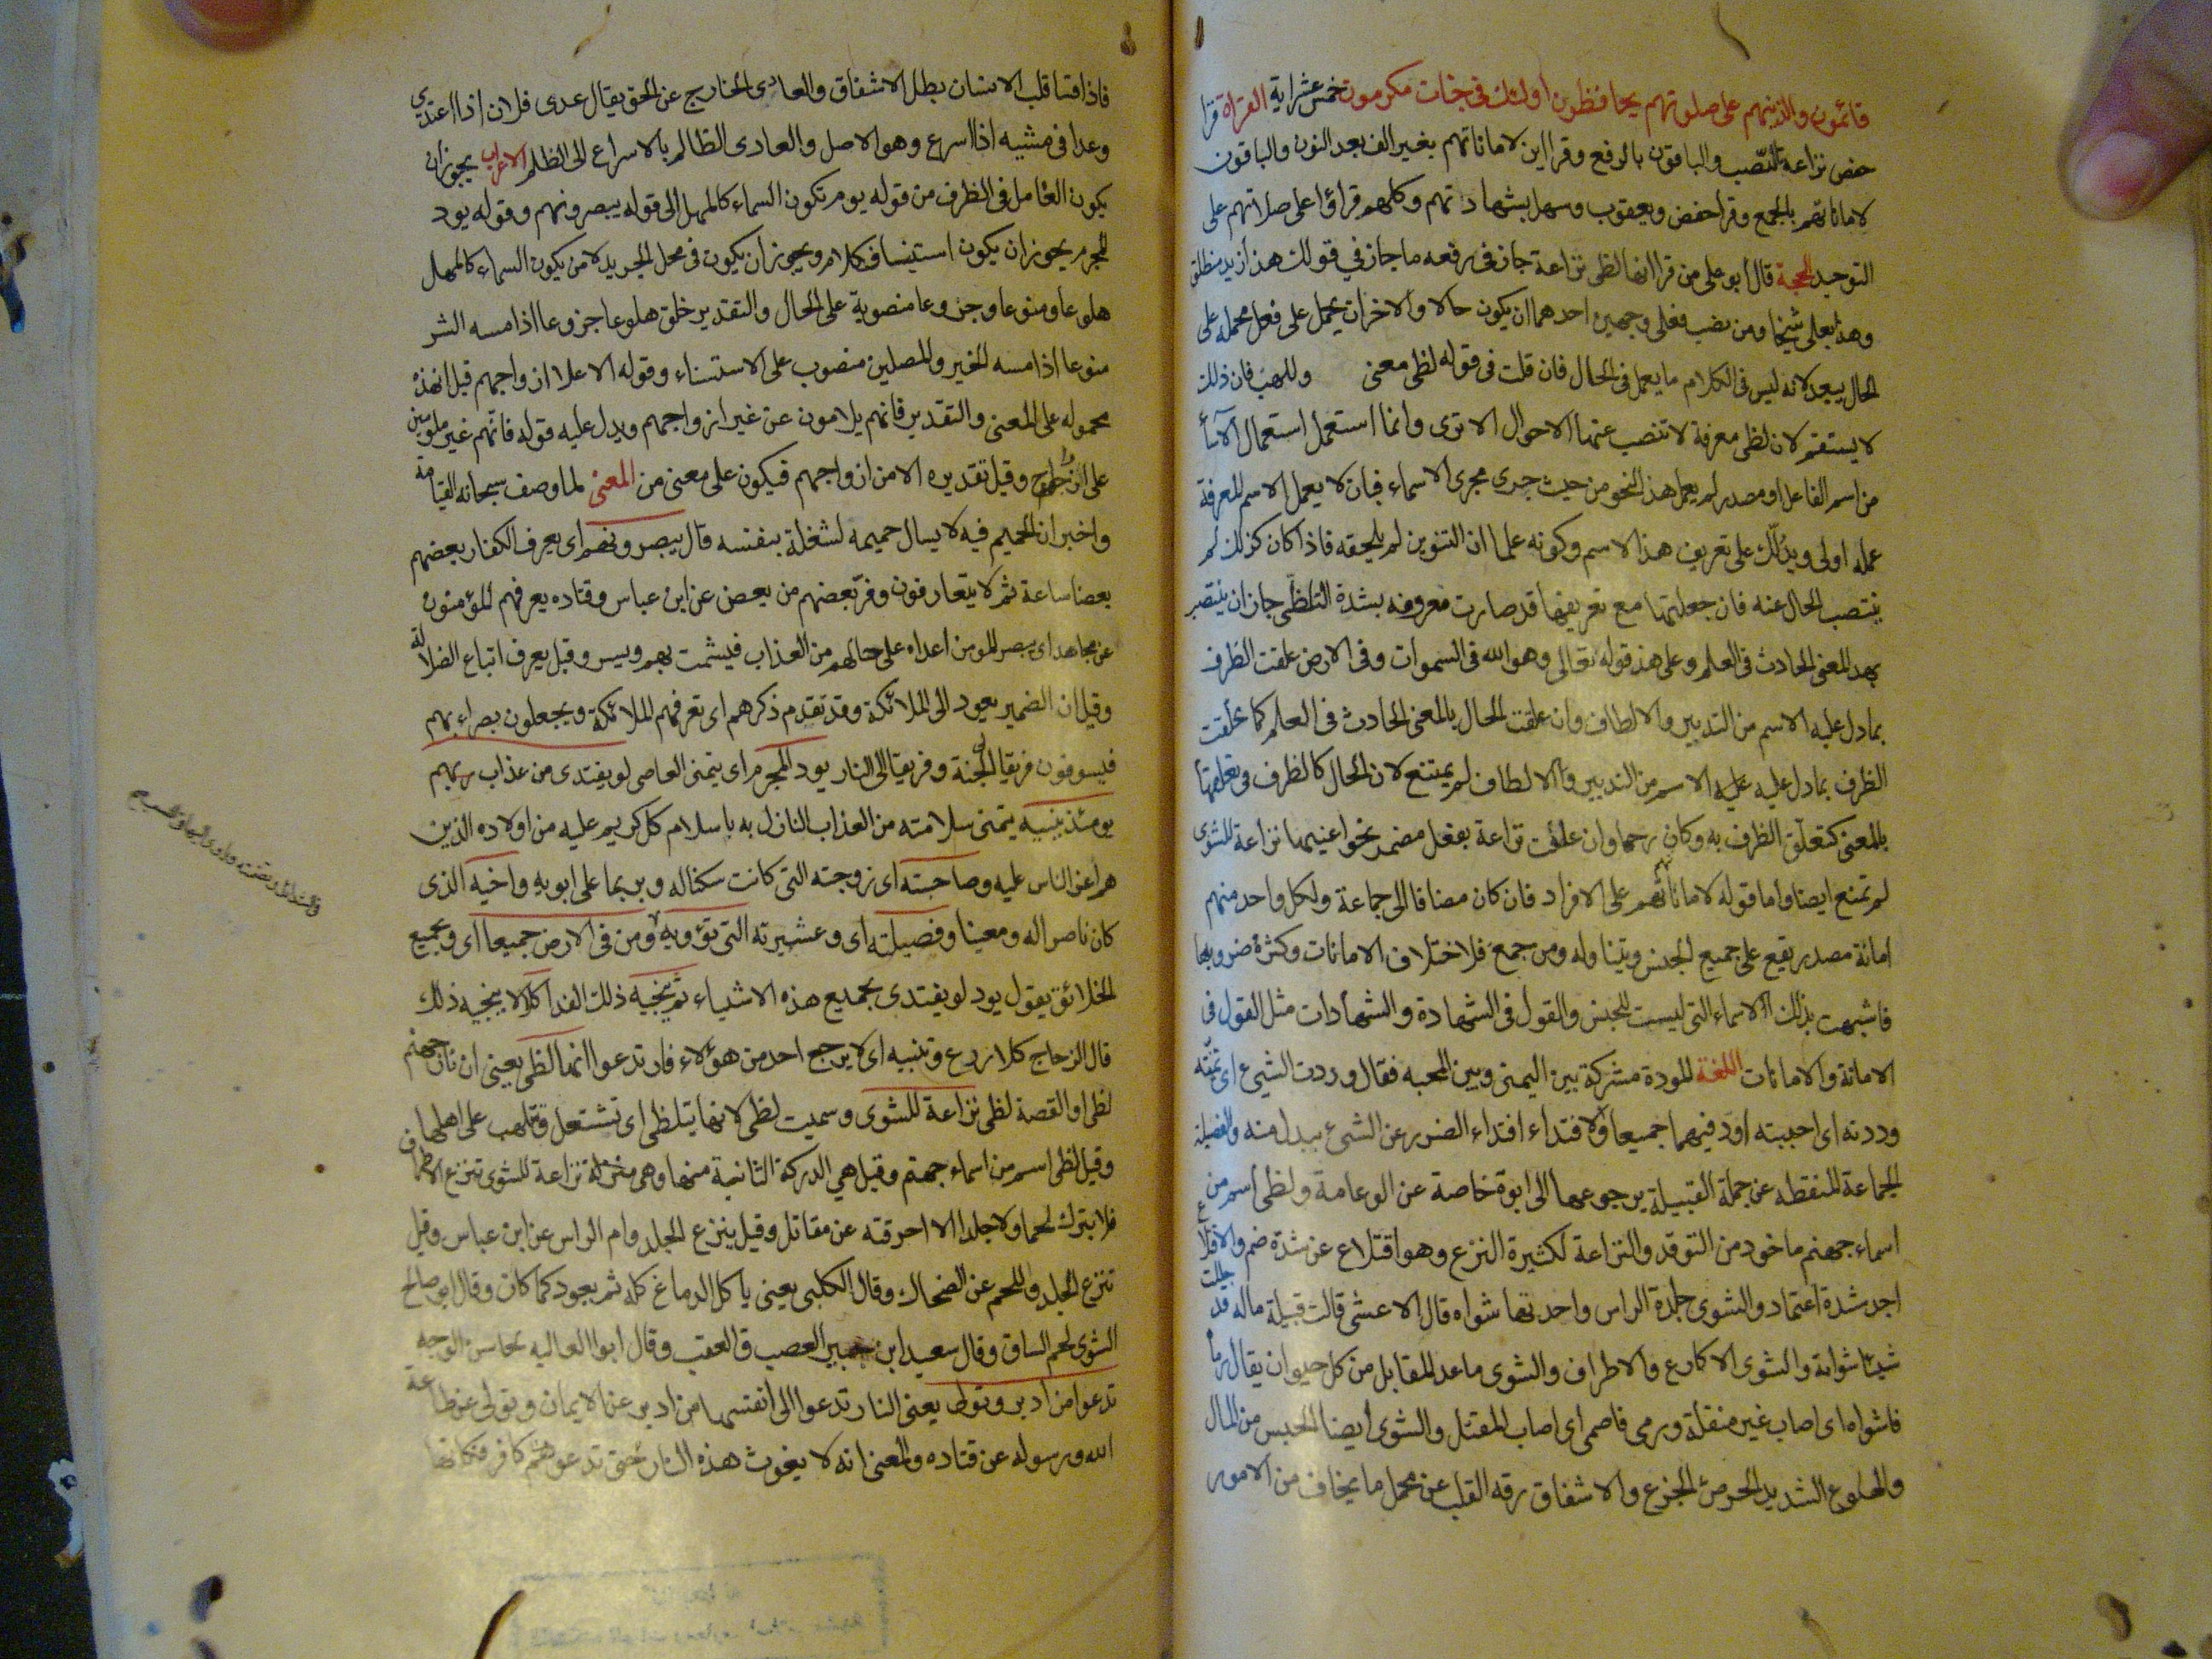 قائمون والذينهم على صلوتهم يحافظون اولئك فى جنات مكرمون خمس عشراية القراة قرا
حفص نزاعة بالنصب والباقون بالرفع وقرا ابن لاماناتهم بغير الف بعد النون والباقون
لاماناتهم بالجمع وقرا حفص ويعقوب وسهل بشهاداتهم وكلهم قراؤا على صلاتهم على
التوحيد الحجة قال ابو على من قرا انها لظى نزاعة جاز فى رفعه ما جاز في قولك هذا زيد منطلق
وهذا بعلى شيخا ومن نصب فعلى وجهين احدهما ان يكون حالا والاخر ان يحمل على فعل فحمله على
الحال يبعد لانه ليس فى الكلام ما يعمل فى الحال فان قلت فى قوله لظى معنى وللهب فان ذلك
لا يستقم لان لظى معرفة لا تنصب عنها الاحوال الا ترى وانما استعمل استعمال الاسما
من اسم الفاعل او مصدر لم يعمل هذا النحو من حيث جري مجرى الاسماء فبان لا يعمل الاسم المعرفة
عمله اولى ويدلك على تعريف هذا الاسم وكونه علما ان التنوين لم يلحقه فاذا كان كذلك لم
ينتصب الحال عنه فان جعلتها مع تعريفها قد صارت معروفه بشدة التلظى جاز ان ينتصب
بهذا المعنى الحادث فى العلم وعلى هذ قوله تعالى وهو الله فى السموات وفى الارض علقت الظرف
بما دل عليه الاسم من التدبير والالطاف وان علقت الحال بالمعنى الحادث فى العلم كما علقت
الظرف بما دل عليه عليه الاسم من التدبير والالطاف لم يمتنع لان الحال كالظرف فى تعلقها
بالمعنى كتعلق الظرف به وكان وان علقت نزاعة بفعل مضمر نحو اعنيها نزاعة للشوى
لم تمنع ايضا واما قوله لاماناتهم على الافراد فان كان مضافا الى جماعة ولكل واحد منهم
امانة مصدر يقع على جميع الجنس ويتناوله ومن جمع فلاختلاف الامانات وكثرة ضروبها
فاشبهت بذلك الاسماء التى ليست للجنس والقول فى الشهادة والشهادات مثل القول فى
الامانة والامانات اللغة المودة مشتركة بين اليمنى وبين المحبه فقال وددت الشيئ اى تمنيته
وددته اى احببته اود فيهما جميعا والافتداء افتداء الضرر عن الشئ ببدل منه والفصيلة
الجماعة المنقطه عن جملة القبيلة يرجوعها الى ابوة خاصة عن ابوة عامة ولظى اسم من
اسماء جهنم ماخود من التوقد والنزاعة لكثيرة النزع وهو اقتلاع عن شدة ضم والاقلاع
اجد شدة اعتماد والشوى جلدة الراس واحدتها شواه قال الاعشى قالت قبيلة ماله قد جللت
شيبا شواته والشوى الاكارع والاطراف والشوى ماعد المقابل من كل حيوان يقال رما
فاشواه اى اصاب غير منقلة ورمى فاصمى اى اصاب المقتل والشوى ايضا الخسيس من المال
والهلوع الشديد الحرص الجزع والاشفاق رقه القلب عن تحمل ما يخاف من الامور
فاذا قسا قلب الانسان بطل الاشفاق والعادى الخارج عن الحق يقال عدى فلان اذا اعتدي
وعدا فى مشيه اذا اسرع وهو الاصل والعادى الظالم بالاسراع الى الظلم الاعراب يجوز ان
يكون العامل فى الظرف من قوله يوم تكون السماء كالمهل الى قوله يبصرونهم وقوله يود
المجرم يجوز ان يكون استيناف كلام ويجوز ان يكون فى محل الجر بدلا من يكون السماء كالمهل
هلوعا ومنوعا وجزوعا منصوبة على الحال والتقدير خلق هلوعا جزوعا اذا مسه الشر
منوعا اذا مسه الخير والمصلين منصوب على الاستثناء وقوله الا على ازواجهم قيل ان هذه
محموله على المعنى والتقدير فانهم يلامون عن غير ازواجهم ويدل عليه قوله فانهم غير ملومين
على ازواجهم وقيل تقديره الا من ازواجهم فيكون على معنى من المعنى لما وصف سبحانه القيامة
واخبر ان الحميم فيه لا يسال حميمه لشغلة بنفسه قال يبصرونهم اى يعرف الكفار بعضهم
بعضا ساعة ثم لا يتعارفون وفر بعضهم من بعض عن ابن عباس وقتاده يعرفهم المؤمنون
عن مجاهد اى يبصر المومن اعداه على حالهم من العذاب فيشمت بهم ويسر وقيل يعرف اتباع الضلالة
وقيل ان الضمير يعود الى الملائكة وقد تقدم ذكرهم اى تعرفهم الملائكة ويجعلون بصراء بهم
فيسوقون فريقا الى الجنة وفريقا الى النار يود المجرم اى يتمنى العاصى لو يفتدى من عذاب
يومئذ ببنيه يتمنى سلامته من العذاب النازل به باسلام كل كريم عليه من اولاده الذين
هم اعز الناس عليه وصاحبته اى زوجته التى كانت سكنا له وربما على ابويه واخيه الذى
كان ناصرا له ومعينا وفصيلته اى وعشيرته التى تؤويه ومن فى الارض جميعا اى وبجميع
الخلائق يقول يود لو يفتدى بجميع هذه الاشياء ثم ينجيه ذلك الفدا كلا لا ينجيه ذلك
قال الزجاج كلا ردع وتنبيه اى لا يرجع احد من هؤلاء فارتدعوا انها لظى يعنى ان نار جهنم
لظى او القصة لظى نزاعة للشوى وسميت لظى لانها يتلظى اى تشتعل وتلهب على اهلها
وقيل لظى اسم من اسماء جهنم وقيل هي الدركة الثانية منها وهى نزاعة للشوى تنزع الاطراف
فلا يترك لحما ولا جلدا الا احرقته عن مقاتل وقيل ينزع الجلد وام الراس عن ابن عباس وقيل
تنزع الجلد واللحم عن الضحاك وقال الكلبى يعنى ياكل الدماغ كله ثم يعود كما كان وقال ابو صالح
الشوى لحم الساق وقال سعيد ابن جبير العصب والعقب وقال ابوا العاليه محاسن الوجه
تدعوا من ادبر وتولى يعنى النار تدعوا الى انفسها من ادبر عن الايمان وتولى عن طاعة
الله ورسوله عن قتاده والمعنى انه لا يفوت هذه النار كافر فكانها